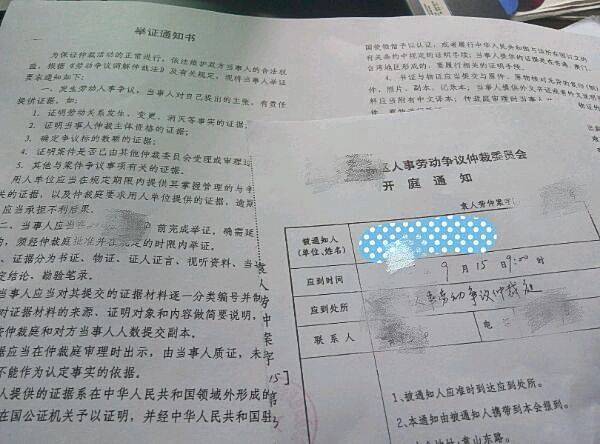 举证通知书
为保证仲裁活动的正常进行，依法维护双方当事人的合法权
益，根据《劳动争议调解仲裁法》及有关规定，现将当事人举证
要求通知如下：
一、发生劳动人事争议，当事人对自己提出的主张，有责任
提供证据，如：
1、证明劳动关系发生、变更、消灭等事实的证据；
2、证明当事人仲裁主体资格的证据；
3、确定争议标的数额的证据；
4、证明案件是否已由其他仲裁委员会受理或审理过
5、其他与案件争议事项有关的证据。
用人单位应当在规定期限内提供其掌握管理的与争
关的证据，以及仲裁庭要求用人单位提供的证据，逾期
应当承担不利后果。
二、当事人应当在 前完成举证，确需延
的，须经仲裁庭批准并在规定的时限内举证。
证据分为书证、物证、证人证言、视听资料、当
定结论、勘验笔录。
当事人应当对其提交的证据材料逐一分类编号并制
对证据材料的来源、证明对象和内容做简要说明，
按仲裁庭和对方当事人人数提交副本。
据应当在仲裁庭审理时出示，由当事人质证，未
不能作为认定事实的依据。
人提供的证据系在中华人民共和国领域外形成的
在国公证机关予以证明，并经中华人民共和国驻
国使领馆予以认证，或者履行中华人民共和国与该所在国订立的
有关条约中规定的证明手续；当事人提供的证据是在香港、澳门、
台湾地区形成的，要履行相关的证明手续。
4、书证与物证应当提交与原件、原物核对无异的复印
件、照片、副本、记录本，当事人提供外文书证或者外文说明
料应当附有中文译本；仲裁庭审理时当事人
区人事劳动争议仲裁委员会
开庭通知
袁人劳仲案字
被通知人
(单位、姓名)
应到时间
9月15日9:00时
应到处所
人事劳动争议仲裁庭
联系人
电
15]
第
1、被通知人应准时到达应到处所。
2、本通知由被通知人携带到本会报到。
袁山东路。